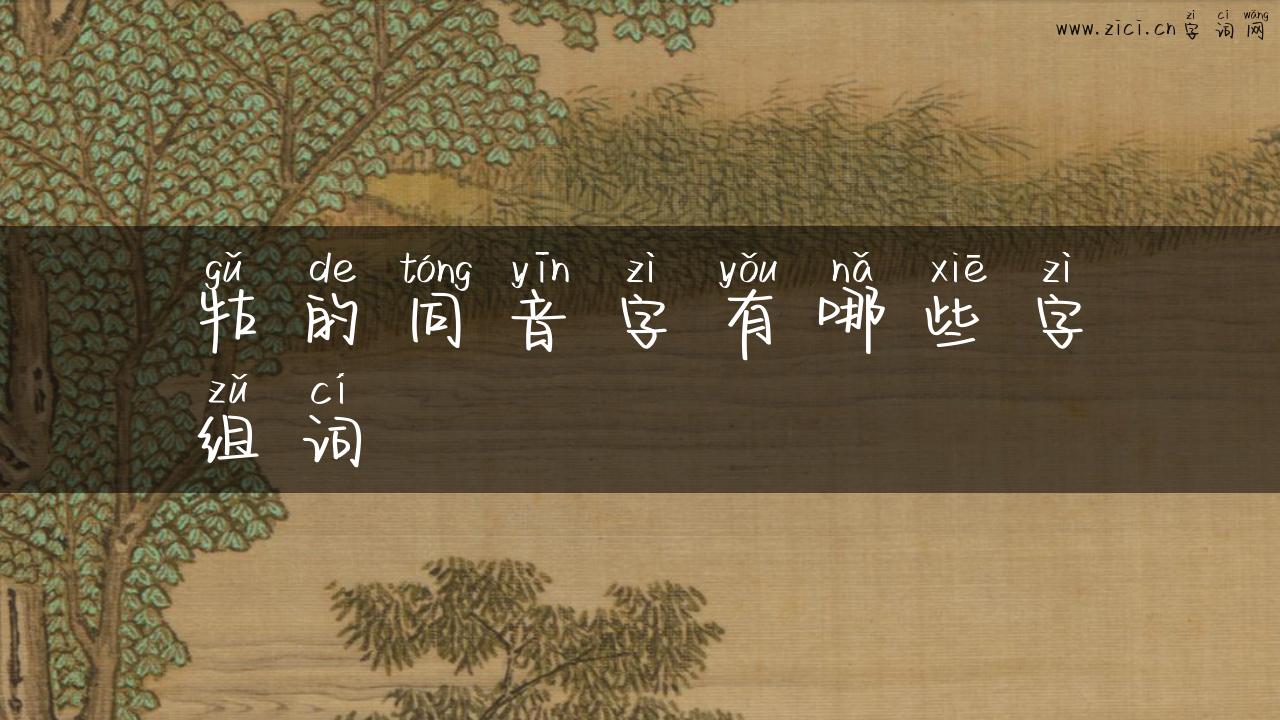 zì cí wǎng
www.zici.cn 字词网
gǔ de tóng yīn zì yǒu nǎ xiē zì
牯的同音字有哪些字
zǔ cí
组词